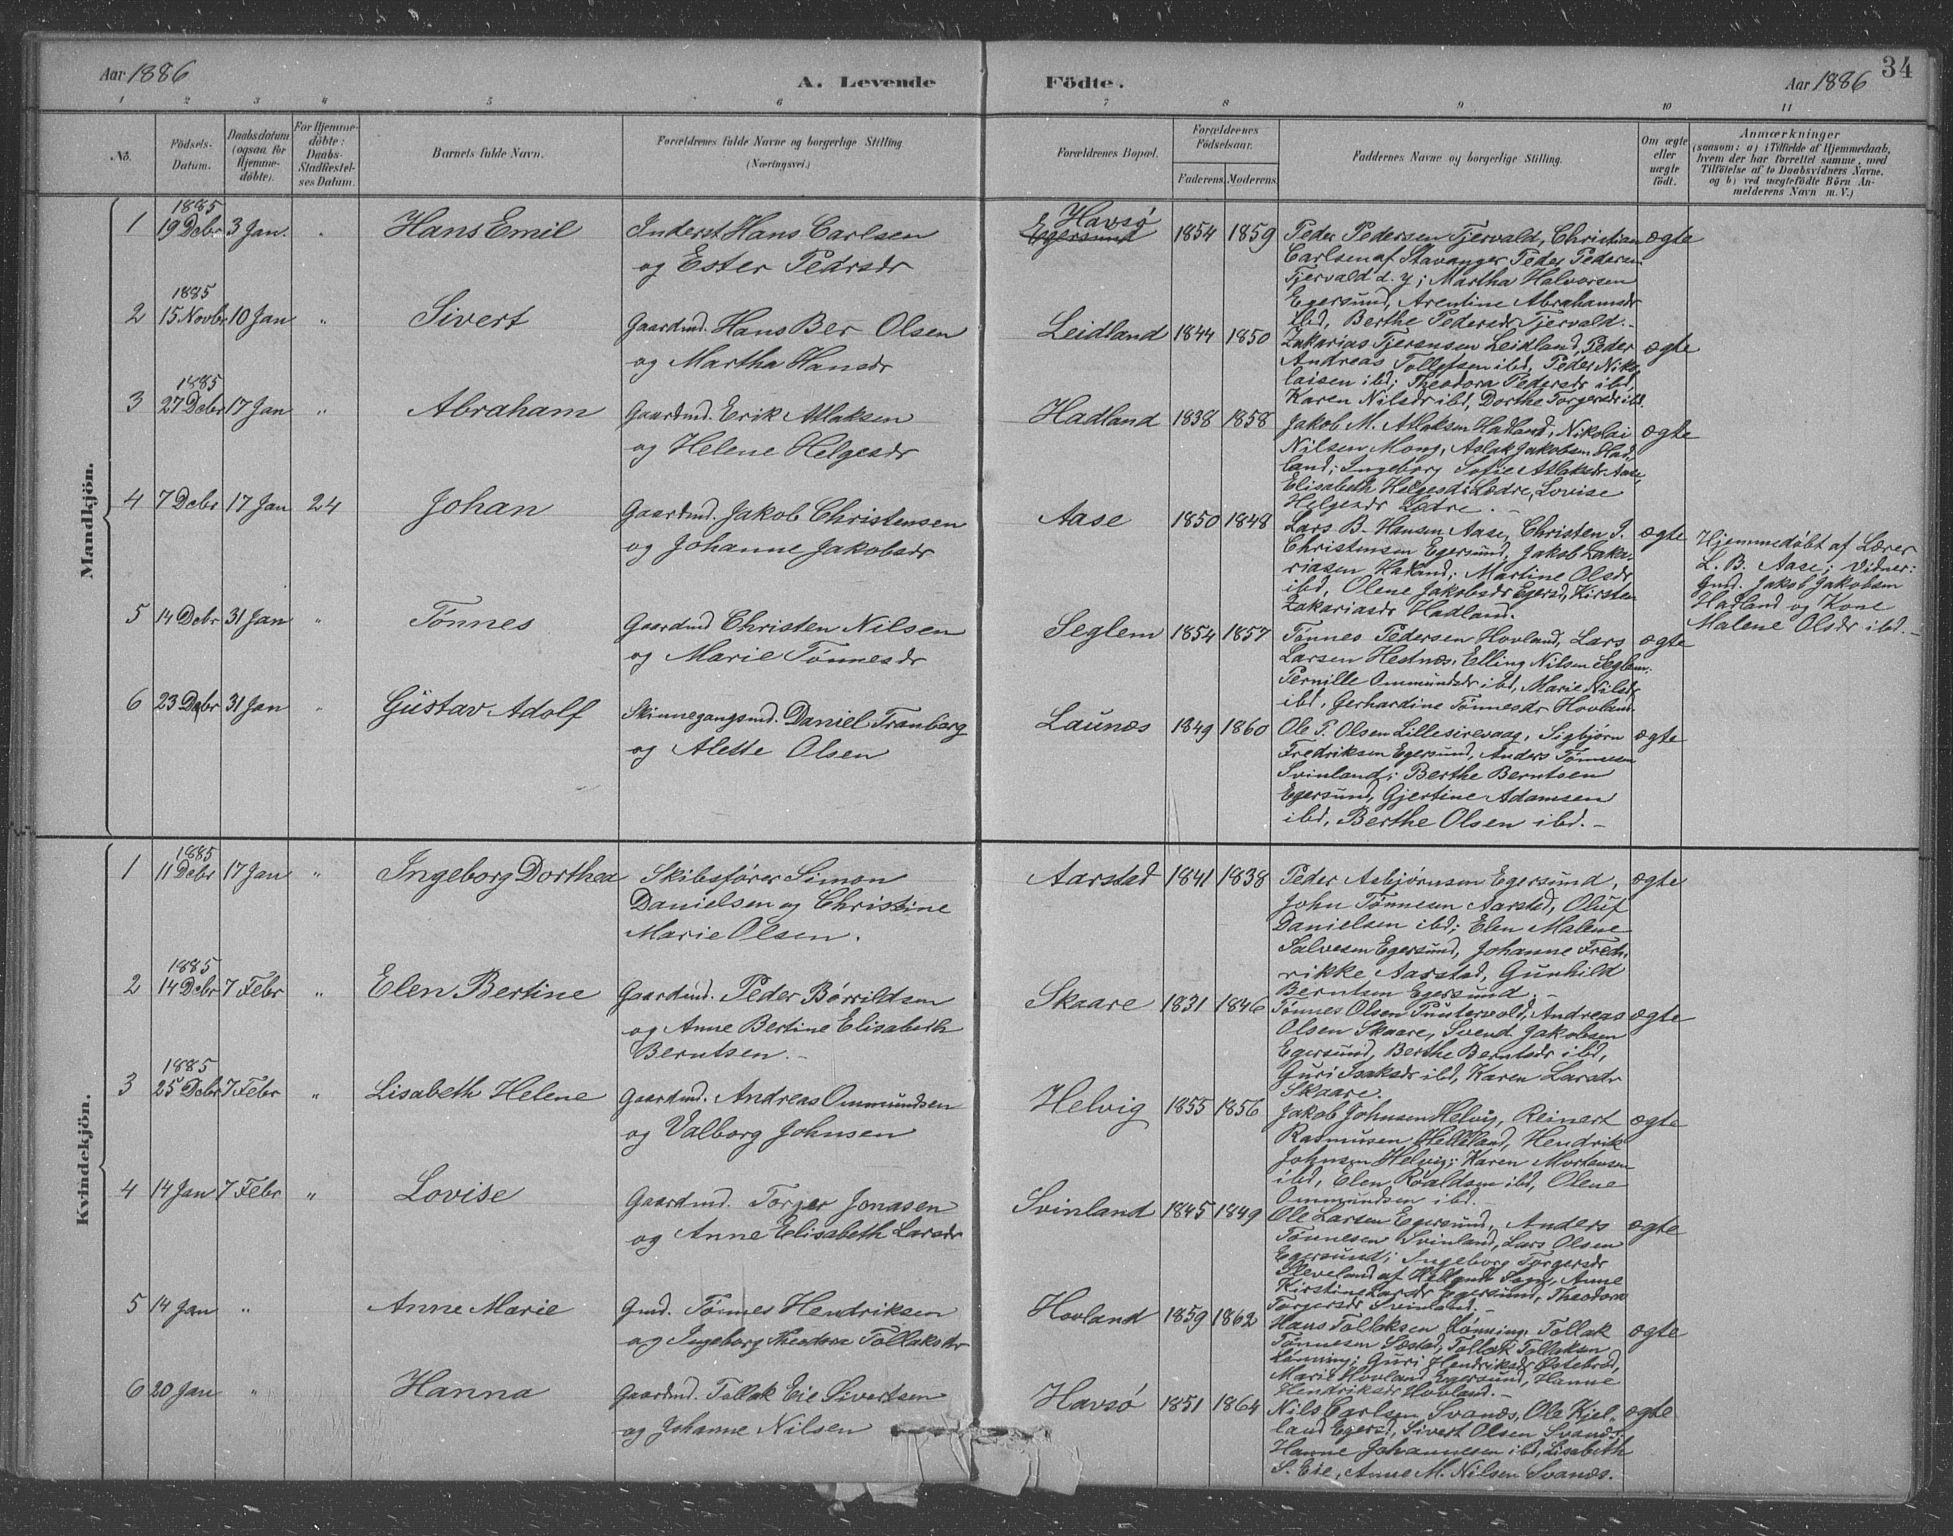 Aar 1886
A. Levende Födte.
Aar 1886
34
1 2 3 4 5 6 7 8 9 10 11
No.
Födsels-Datum.
Daabsdatum (ogsaa for Hjemme-döbte).
For Hjemme-döbte: Daabs-Stadfæstel-ses Datum.
Barnets fulde Navn.
Forældrenes fulde Navne og borgerlige Stilling (Næringsvei.)
Forældrenes Bopæl.
Forældrenes Födselsaar.
Faderens. Moderens.
Faddernes Navne og borgerlige Stilling.
Om ægte eller uægte födt.
Anmærkninger
(saasom: a) i Tilfælde af Hjemmedaab,
hvem der har forrettet samme, med
Tilföielse af to Daabsvidners Navne.
og b) ved uægtefödte Börn An-
melderens Navn m. V.)
Mandkjön.
1 1885 19 Decbr 3 Jan. " Hans Emil
Inderst Hans Carlsen
og Ester Pedrsdr
Egersund Havsø 1854 1859
Peder Pedersen Tjervald, Christian
Carlsen af Stavanger Peder Pedersen
Tjervald d. y; Martha Halvorsen
Egersund, Arentine Abrahamsdr
ibd, Berthe Pedersdr Tjervald.-
ægte
2 1885 15 Novbr 10 Jan " Sivert
Gaardmd. Hans Ber Olsen
og Martha Hansdr
Leidland 1844 1850
Zakarias Tjerensen Leidland, Peder
Andreas Tollefsen ibd, Peder Niko-
laisen ibd; Theodora Pedersdr ibd,
Karen Nilsdr ibd, Dorthe Torgersdr ibd.
ægte
3 1885 27 Decbr 17 Jan " Abraham
Gaardmd. Erik Atlaksen
og Helene Helgesdr
Hadland 1838 1858
Jakob M. Atlaksen Hadland, Nikolai
Nilsen Mong, Aslak Jakobsen Had-
land; Ingeborg Sofie Atlaksdr Aase,
Elisabeth Helgesdr Lædre, Lovise
Helgesdr Lædre.-
ægte
4 7 Decbr 17 Jan 24 Johan
Gaardmd. Jakob Christensen
og Johanne Jakobsdr
Aase 1850 1848
Lars B. Hansen Aase, Christen J.
Christensen Egersund, Jakob Zaka-
riasen Hadland; Martine Olsdr
ibd, Olene Jakobsdr Egersd, Kirsten
Zakariasdr Hadland.
ægte
Hjemmedøbt af Lærer
L. B. Aase; Vidner:
Gmd. Jakob Jakobsen
Hadland og Kone
Malene Olsdr ibd.-
5 14 Decbr 31 Jan " Tønnes
Gaardmd Christen Nilsen
og Marie Tønnesdr
Seglem 1854 1857
Tønnes Pedersen Hovland, Lars
Larsen Hestnæs, Elling Nilsen Seglem;
Pernille Ommundsdr ibd, Marie Nilsdr
ibd, Gerhardine Tønnesdr Hovland
ægte
6 23 Decbr 31 Jan " Gustav Adolf
Skinnegangsmd. Daniel Tranberg
og Alette Olsen
Launæs 1849 1860
Ole P. Olsen Lillesirevaag, Sigbjørn
Fredriksen Egersund, Anders Tønnesen
Svinland; Berthe Berntsen
Egersund, Gjertine Adamsen
ibd, Berthe Olsen ibd.-
ægte
Kvindekjön.
1 1885 11 Decbr 17 Jan " Ingeborg Dorthea
Skibsfører Simon
Danielsen og Christine
Marie Olsen.
Aarstad 1841 1838
Peder Asbjørnsen Egersund,
John Tønnesen Aarstad, Oluf
Danielsen ibd; Elen Malene
Salvesen Egersund, Johanne Fred-
rikke Aarstad, Gunhild
Berntsen Egersund.-
ægte
2 1885 14 Decbr 7 Febr " Elen Bertine
Gaardmd. Peder Børrildsen
og Anne Bertine Elisabeth
Berntsen.-
Skaare 1831 1846
Tønnes Olsen Puntervold, Andreas
Olsen Skaare, Svend Jakobsen
Egersund, Berthe Berntsdr ibd,
Guri Isaksdr ibd, Karen Larsdr
Skaare.
ægte
3 1885 25 Decbr 7 Febr " Lisabeth Helene
Gaardmd. Andreas Ommundsen
og Valborg Johnsen
Helvig 1855 1856
Jakob Johnsen Helvig, Reinert
Rasmussen Helleland, Hendrik
Johnsen Helvig; Karen Mortensen
ibd, Elen Roaldsen ibd, Olene
Ommundsen ibd.-
ægte
4 14 Jan 7 Febr " Lovise
Gaardmd. Torger Jonasen
og Anne Elisabeth Larsdr
Svinland 1845 1849
Ole Larsen Egersund, Anders
Tønnesen Svinland, Lars Olsen
Egersund; Ingeborg Torgersdr
Sleveland af Hellands Sogn, Anne
Kirstine Larsdr Egersund, Theodora
Torgersdr Svinland.-
ægte
5 14 Jan " Anne Marie
Gmd. Tønnes Hendriksen
og Ingeborg Theodora Tollaksdr
Hovland 1859 1862
Hans Tollaksen Lønning, Tollak
Tønnesen Sæstad, Tollak Tollaksen
Lønning; Guri Hendriksdr Østebrød,
Marie Hovland Egersund, Hanne
Hendriksdr Hovland.-
ægte
6 20 Jan " Hanna
Gaardmd. Tollak Eie Sivertsen
og Johanne Nilsen
Havsø 1851 1864
Nils Carlsen Svanæs, Ole Kjel-
land Egersd, Sivert Olsen Svanæs;
Hanne Johannesen ibd, Lisabeth
S. Eie, Anne M. Nilsen Svanæs.
ægte